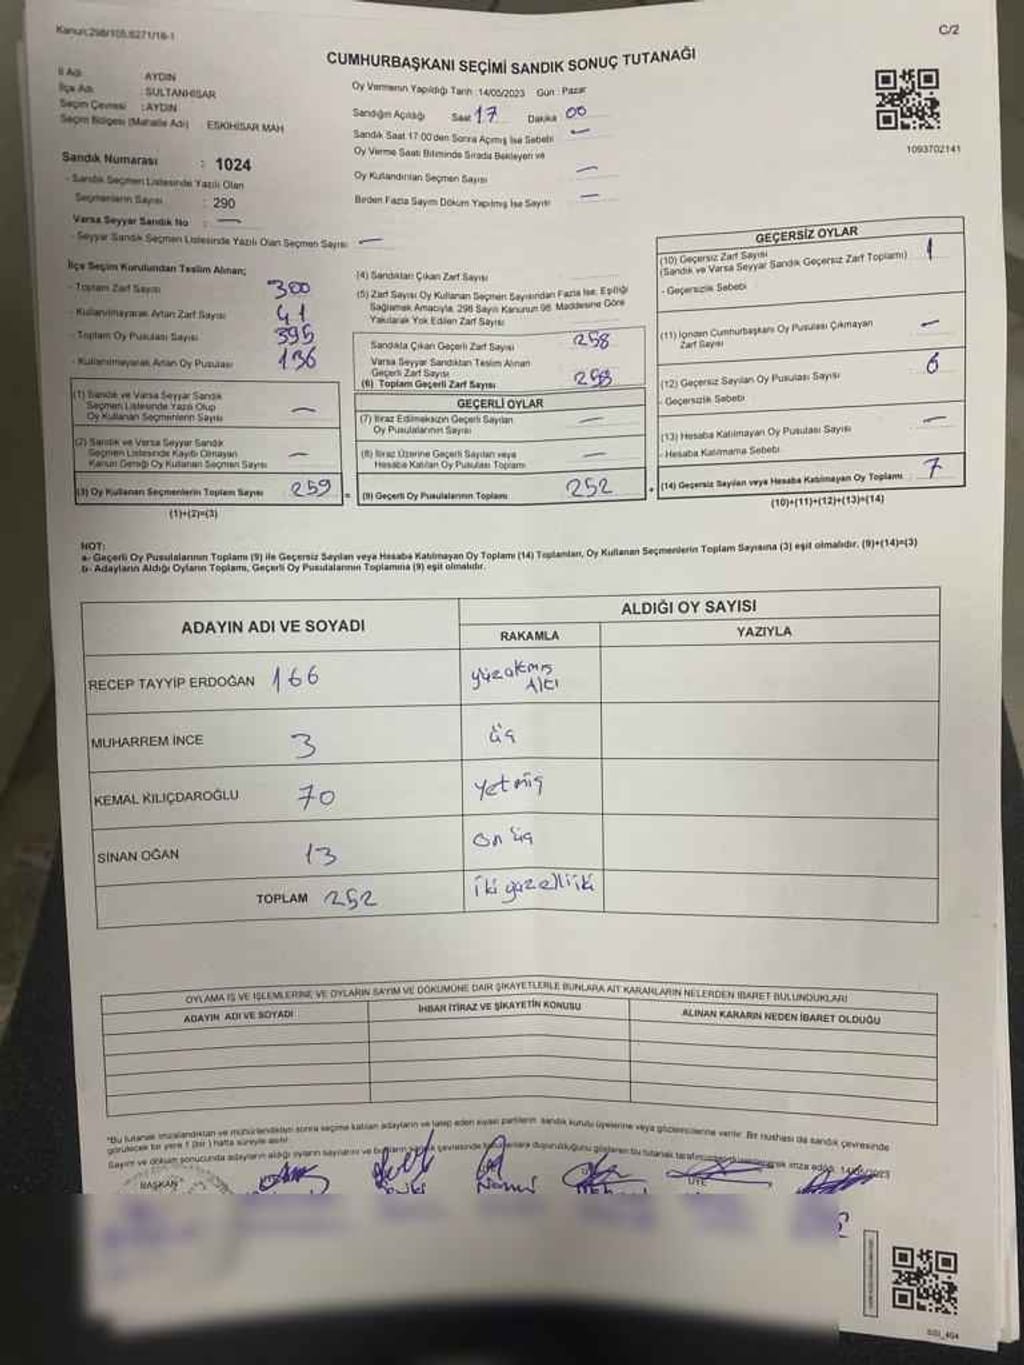 Kanun:298/105,6271/16-1
C/2
CUMHURBAŞKANI SEÇİMİ SANDIK SONUÇ TUTANAĞI
İl Adı : AYDIN
İlçe Adı : SULTANHİSAR
Seçim Çevresi : AYDIN
Seçim Bölgesi (Mahalle Adı) ESKİHİSAR MAH
Sandık Numarası : 1024
- Sandık Seçmen Listesinde Yazılı Olan
Seçmenlerin Sayısı : 290
Varsa Seyyar Sandık No : —
- Seyyar Sandık Seçmen Listesinde Yazılı Olan Seçmen Sayısı —
Oy Vermenin Yapıldığı Tarih :14/05/2023 Gün : Pazar
Sandığın Açıldığı Saat 17 Dakika 00
Sandık Saat 17:00'den Sonra Açımış İse Sebebi —
Oy Verme Saati Bitiminde Sırada Bekleyen ve
Oy Kullandırılan Seçmen Sayısı —
Birden Fazla Sayım Döküm Yapılmış İse Sayısı —
1093702141
İlçe Seçim Kurulundan Teslim Alınan;
- Toplam Zarf Sayısı 300
- Kullanılmayarak Artan Zarf Sayısı 41
- Toplam Oy Pusulası Sayısı 395
- Kullanılmayarak Artan Oy Pusulası 136
(1) Sandık ve Varsa Seyyar Sandık
Seçmen Listesinde Yazılı Olup
Oy Kullanan Seçmenlerin Sayısı —
(2) Sandık ve Varsa Seyyar Sandık
Seçmen Listesinde Kaydı Olmayan
Kanun Gereği Oy Kullanan Seçmen Sayısı —
(3) Oy Kullanan Seçmenlerin Toplam Sayısı 259 =
(1)+(2)=(3)
(4) Sandıktan Çıkan Zarf Sayısı
(5) Zarf Sayısı Oy Kullanan Seçmen Sayısından Fazla İse, Eşitliği
Sağlamak Amacıyla, 298 Sayılı Kanunun 98. Maddesine Göre
Yakılarak Yok Edilen Zarf Sayısı
Sandıkta Çıkan Geçerli Zarf Sayısı 258
Varsa Seyyar Sandıktan Teslim Alınan
Geçerli Zarf Sayısı
(6) Toplam Geçerli Zarf Sayısı 258
GEÇERLİ OYLAR
(7) İtiraz Edilmeksizin Geçerli Sayılan
Oy Pusulalarının Sayısı —
(8) İtiraz Üzerine Geçerli Sayılan veya
Hesaba Katılan Oy Pusulası Toplamı —
(9) Geçerli Oy Pusulalarının Toplamı 252 +
GEÇERSİZ OYLAR
(10) Geçersiz Zarf Sayısı 1
(Sandık ve Varsa Seyyar Sandık Geçersiz Zarf Toplamı)
- Geçersizlik Sebebi
(11) İçinden Cumhurbaşkanı Oy Pusulası Çıkmayan —
Zarf Sayısı
(12) Geçersiz Sayılan Oy Pusulası Sayısı 6
- Geçersizlik Sebebi
(13) Hesaba Katılmayan Oy Pusulası Sayısı —
- Hesaba Katılmama Sebebi
(14) Geçersiz Sayılan veya Hesaba Katılmayan Oy Toplamı 7
(10)+(11)+(12)+(13)=(14)
NOT:
a- Geçerli Oy Pusulalarının Toplamı (9) ile Geçersiz Sayılan veya Hesaba Katılmayan Oy Toplamı (14) Toplamları, Oy Kullanan Seçmenlerin Toplam Sayısına (3) eşit olmalıdır. (9)+(14)=(3)
b- Adayların Aldığı Oyların Toplamı, Geçerli Oy Pusulalarının Toplamına (9) eşit olmalıdır.
ADAYIN ADI VE SOYADI
ALDIĞI OY SAYISI
RAKAMLA YAZIYLA
RECEP TAYYİP ERDOĞAN 166 yüzatmış altı
MUHARREM İNCE 3 üç
KEMAL KILIÇDAROĞLU 70 yetmiş
SİNAN OĞAN 13 on üç
TOPLAM 252 iki yüzelliiki
OYLAMA İŞ VE İŞLEMLERİNE VE OYLARIN SAYIM VE DÖKÜMÜNE DAİR ŞİKAYETLERLE BUNLARA AİT KARARLARIN NELERDEN İBARET BULUNDUKLARI
ADAYIN ADI VE SOYADI İHBAR İTİRAZ VE ŞİKAYETİN KONUSU ALINAN KARARIN NEDEN İBARET OLDUĞU
*Bu tutanak imzalandıktan ve mühürlendikten sonra seçime katılan adayların ve talep eden siyasi partilerin sandık kurulu üyelerine veya gözlemcilerine verilir. Bir nüshası da sandık çevresinde
görülecek bir yere 1 (bir) hafta süreyle asılır.
Sayım ve döküm sonucunda adayların aldığı oyların sayılarını ve bunların sandık çevresinde
duyurulduğunu gösteren bu tutanak tarafımızdan
imza edildi. 14/05/2023
BAŞKAN
ÜYE